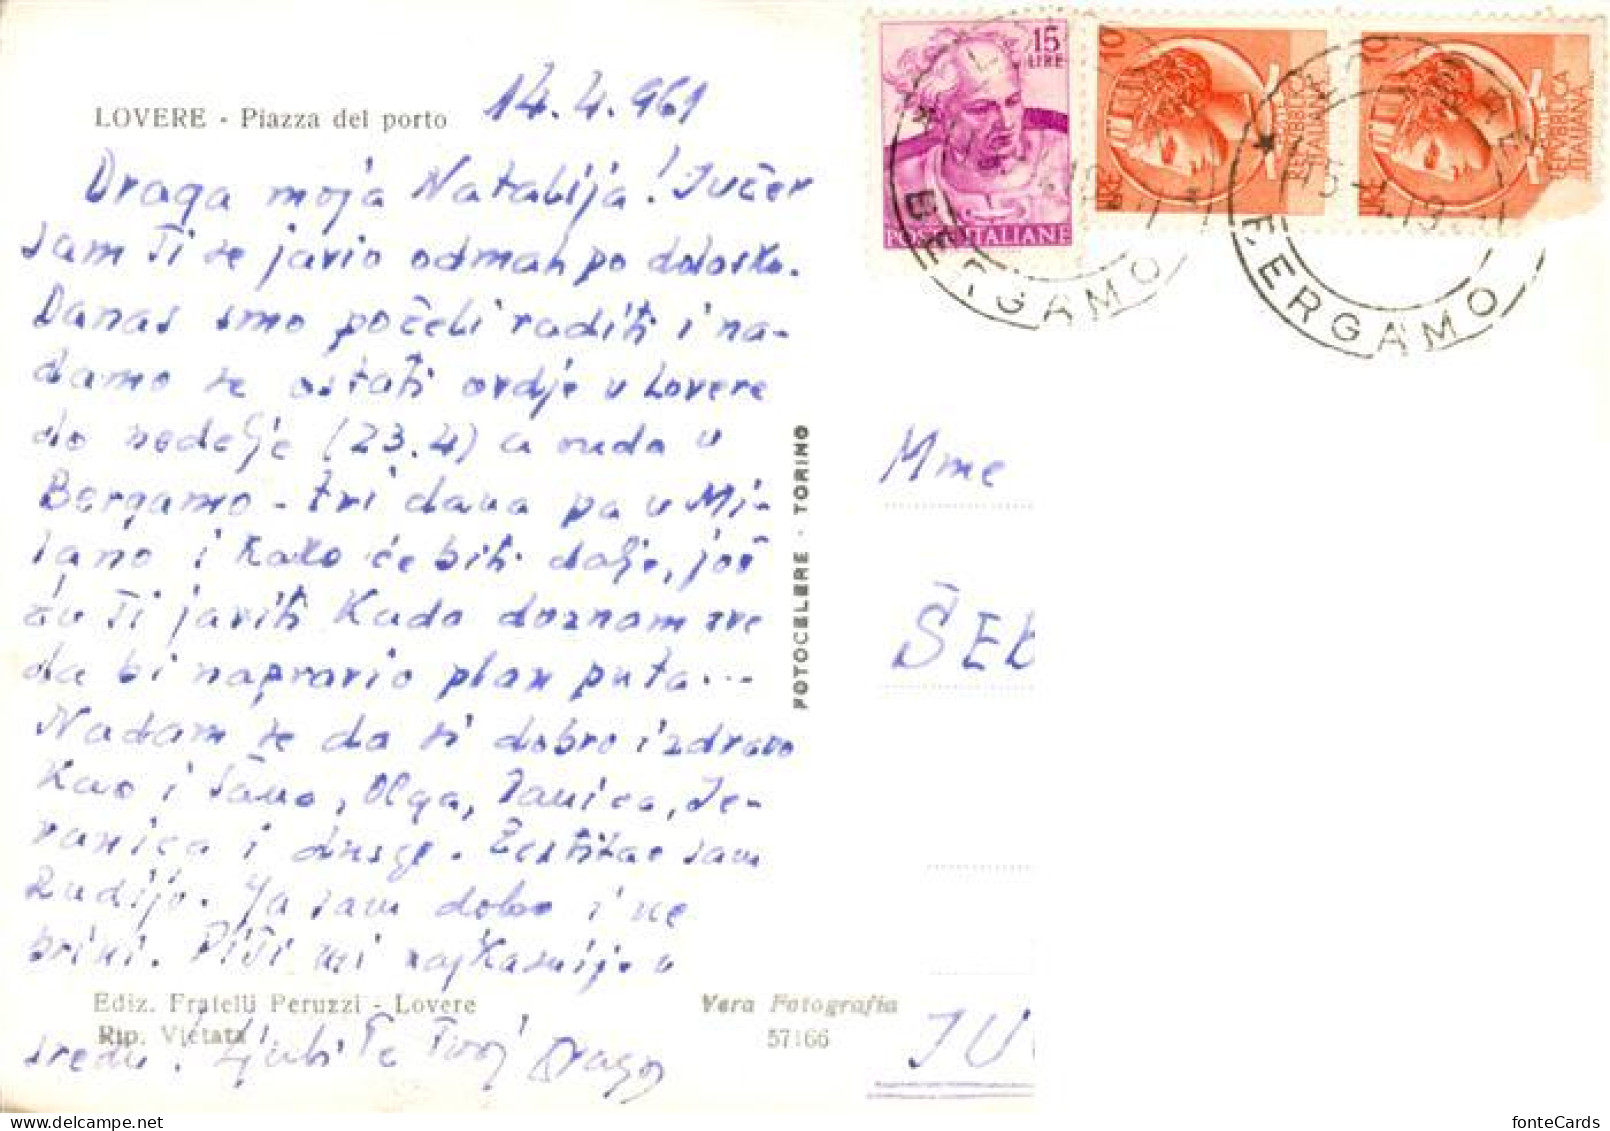 LOVERE - Piazza del porto
14.4.961
Draga moja Natalija! Jučer
sam Ti se javio odmah po dolosku.
Danas smo počeli raditi i na-
damo se ostati ovdje u Lovere
do nedelje (23.4) a onda u
Bergamo - tri dana pa u Mi-
lano i kako će biti dalje, još
ću Ti javiti kada doznam sve
da bi napravio plan puta...
Nadam se da si dobro i zdravo
kao i Olga, Je-
ranica i Čestitao sam
Ja sam dobro i ne
brini. Piši mi najkasnije u
sredu. Ljubi Te Tvoj Drago
Ediz. Fratelli Peruzzi - Lovere
Rip. Vietata
Vera Fotografia
57166
FOTOCELERE - TORINO
15
LIRE
POSTE ITALIANE
10
LIRE
POSTE
REPVBBLICA
ITALIANA
10
LIRE
POSTE
REPVBBLICA
ITALIANA
BERGAMO
BERGAMO
Mme
ŠEK
JU
fonteCards